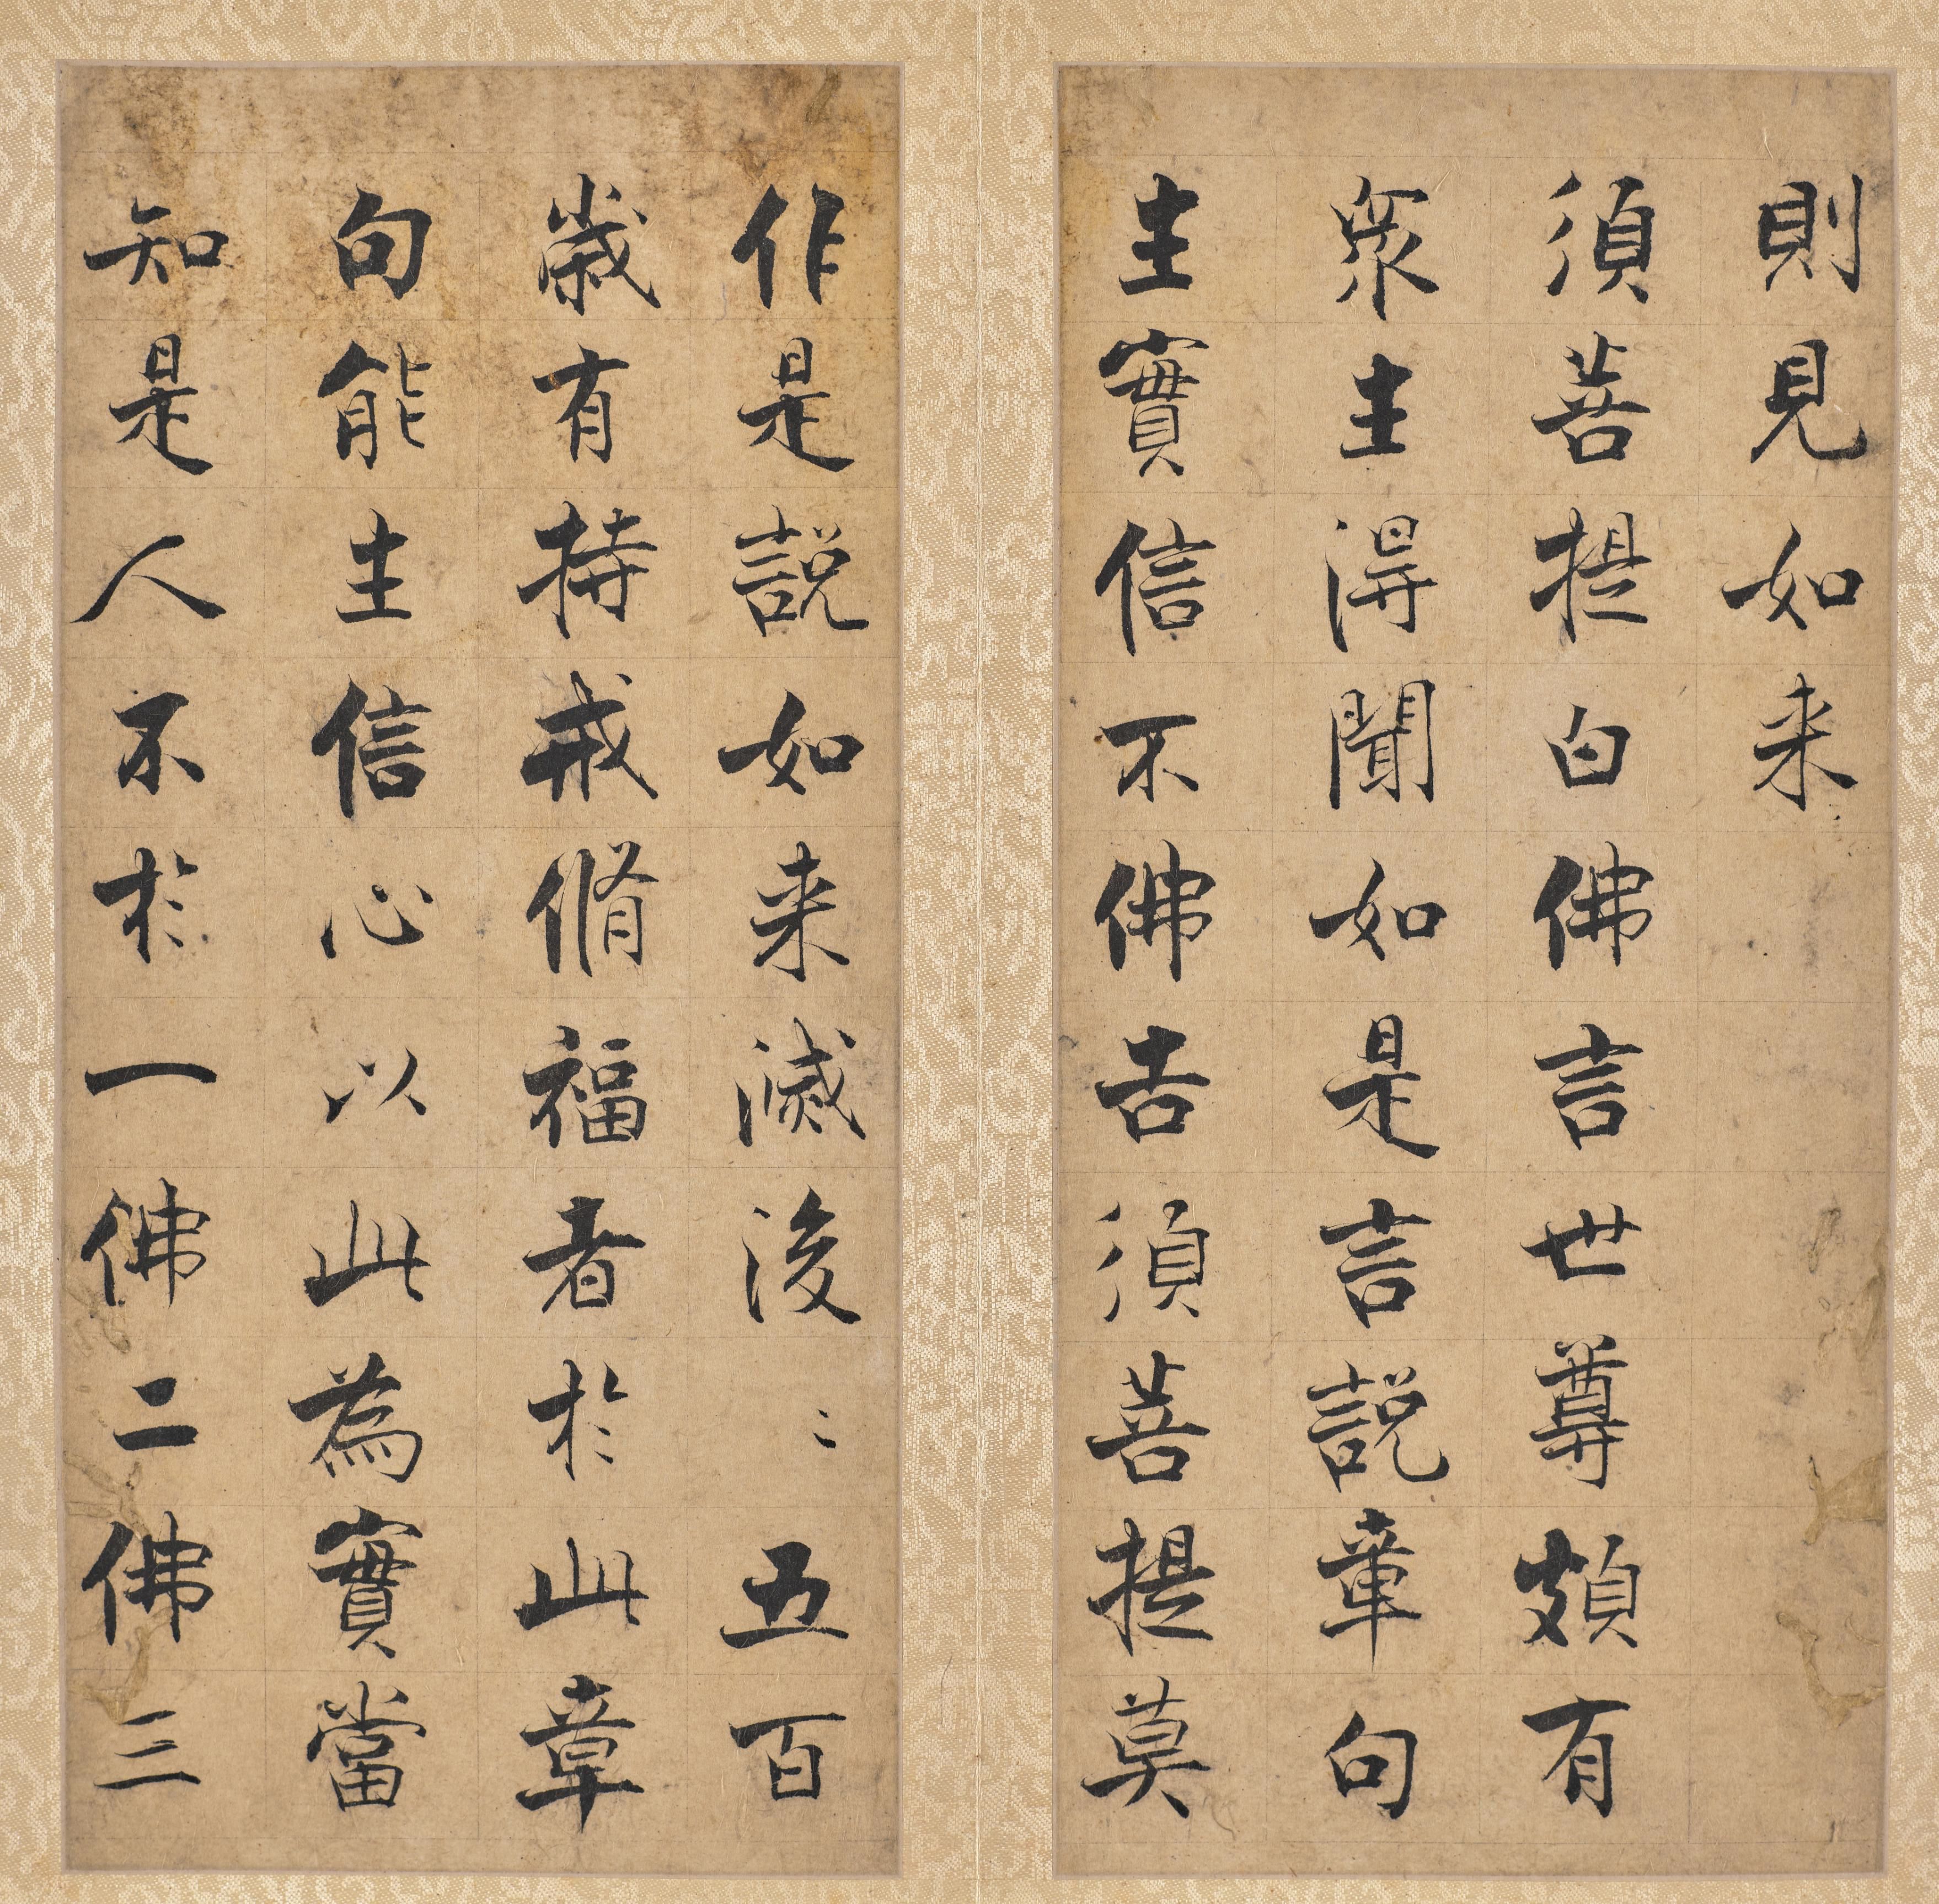 則見如来
須菩提白佛言世尊頗有
衆生得聞如是言説章句
生實信不佛告須菩提莫
作是説如来滅後〻五百
歲有持戒脩福者於此章
句能生信心以此為實當
知是人不於一佛二佛三